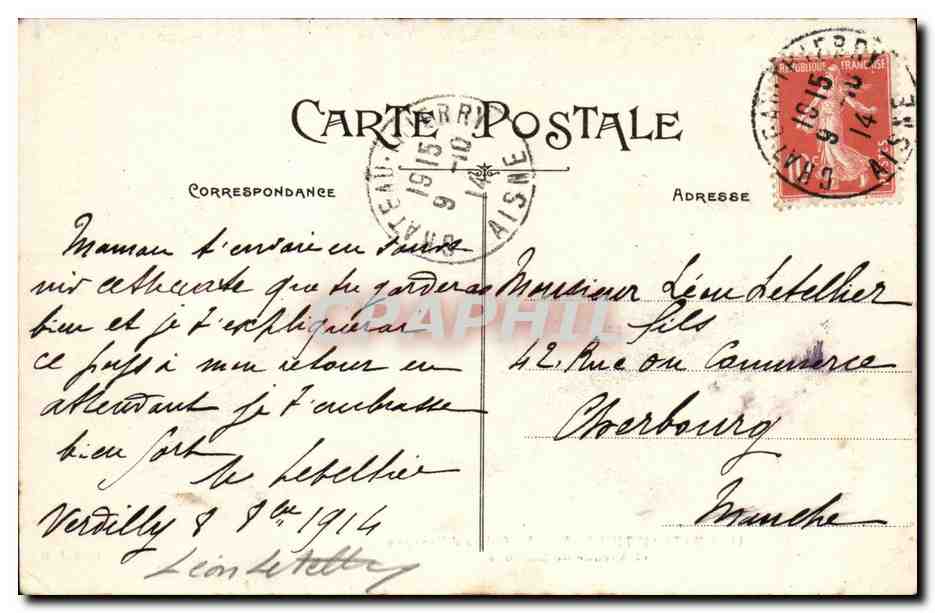 CARTE POSTALE
CORRESPONDANCE
ADRESSE
CHATEAU-THIERRY
1915
9 -10
14
AISNE
REPUBLIQUE FRANCAISE
10c
CHATEAU-THIERRY
1915
9 -10
14
AISNE
Maman t'envoie en
cette carte que tu garderas
bien et je t'expliquerai
ce pays à mon retour en
attendant je t'embrasse
bien fort
Letellier
Verdilly 8 8bre 1914
Léon Letellier
Monsieur Léon Letellier
fils
42. Rue du Commerce
Cherbourg
Manche
CPAPHIL